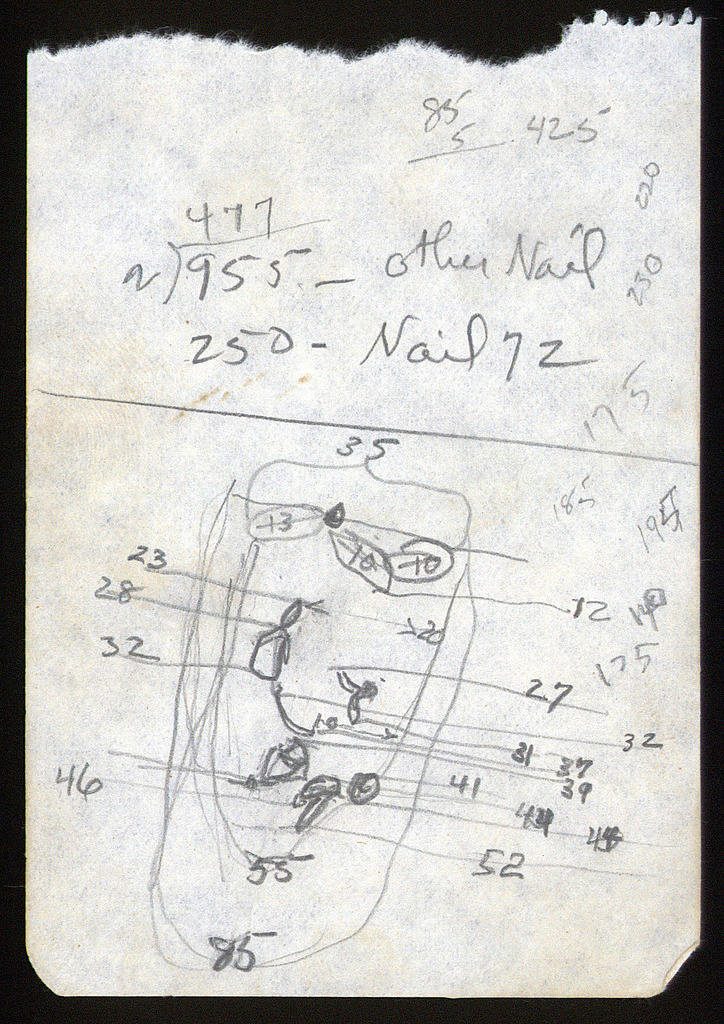 85
5 425
220
477
2)955 - other Nail
250
250 - Nail 72
175
35
185
195
13
10 10
23
28
12
190
20
32
175
27
10
32
31 37
46
41
39
44
44
55
52
85